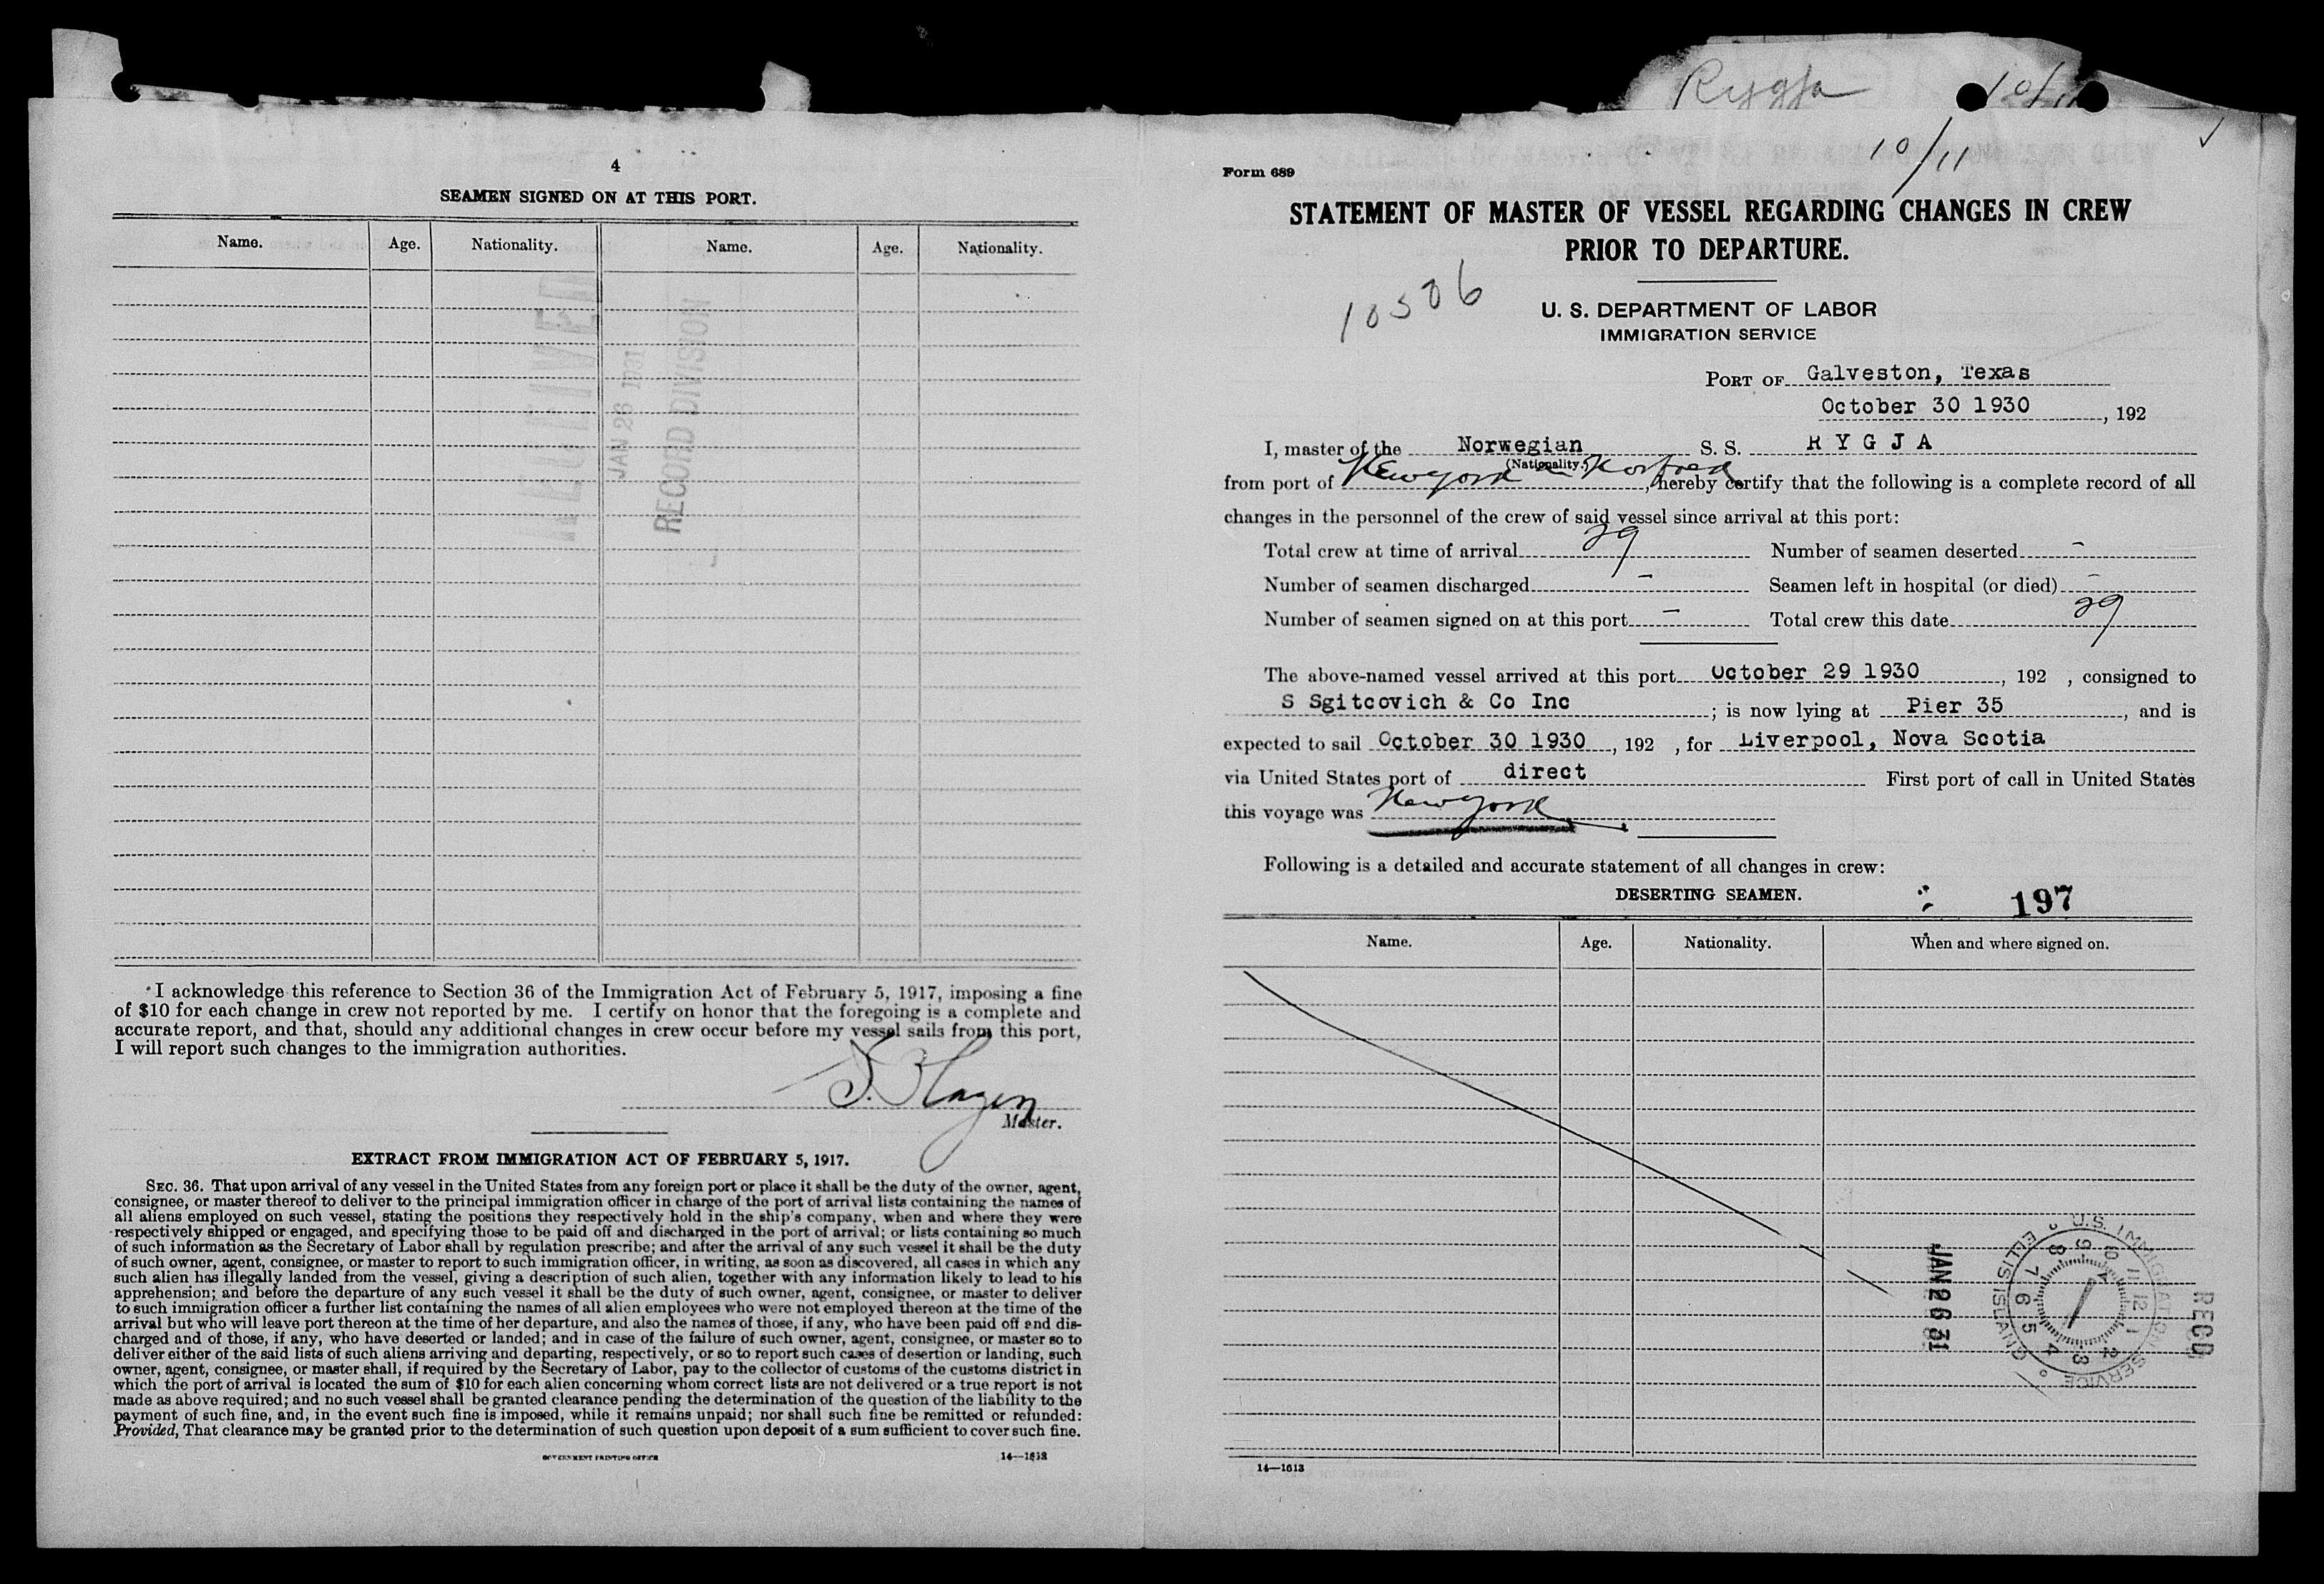 4
SEAMEN SIGNED ON AT THIS PORT.
Name. Age. Nationality. Name. Age. Nationality.
RECEIVED
JAN 26 1931
RECORD DIVISION
I acknowledge this reference to Section 36 of the Immigration Act of February 5, 1917, imposing a fine
of $10 for each change in crew not reported by me. I certify on honor that the foregoing is a complete and
accurate report, and that, should any additional changes in crew occur before my vessel sails from this port,
I will report such changes to the immigration authorities.
S. Hagen
Master.
EXTRACT FROM IMMIGRATION ACT OF FEBRUARY 5, 1917.
SEC. 36. That upon arrival of any vessel in the United States from any foreign port or place it shall be the duty of the owner, agent,
consignee, or master thereof to deliver to the principal immigration officer in charge of the port of arrival lists containing the names of
all aliens employed on such vessel, stating the positions they respectively hold in the ship's company, when and where they were
respectively shipped or engaged, and specifying those to be paid off and discharged in the port of arrival; or lists containing so much
of such information as the Secretary of Labor shall by regulation prescribe; and after the arrival of any such vessel it shall be the duty
of such owner, agent, consignee, or master to report to such immigration officer, in writing, as soon as discovered, all cases in which any
such alien has illegally landed from the vessel, giving a description of such alien, together with any information likely to lead to his
apprehension; and before the departure of any such vessel it shall be the duty of such owner, agent, consignee, or master to deliver
to such immigration officer a further list containing the names of all alien employees who were not employed thereon at the time of the
arrival but who will leave port thereon at the time of her departure, and also the names of those, if any, who have been paid off and dis-
charged and of those, if any, who have deserted or landed; and in case of the failure of such owner, agent, consignee, or master so to
deliver either of the said lists of such aliens arriving and departing, respectively, or so to report such cases of desertion or landing, such
owner, agent, consignee, or master shall, if required by the Secretary of Labor, pay to the collector of customs of the customs district in
which the port of arrival is located the sum of $10 for each alien concerning whom correct lists are not delivered or a true report is not
made as above required; and no such vessel shall be granted clearance pending the determination of the question of the liability to the
payment of such fine, and, in the event such fine is imposed, while it remains unpaid; nor shall such fine be remitted or refunded:
Provided, That clearance may be granted prior to the determination of such question upon deposit of a sum sufficient to cover such fine.
GOVERNMENT PRINTING OFFICE
14—1613
Rygja 10/11
10/11
Form 689
STATEMENT OF MASTER OF VESSEL REGARDING CHANGES IN CREW
PRIOR TO DEPARTURE.
10506
U. S. DEPARTMENT OF LABOR
IMMIGRATION SERVICE
PORT OF Galveston, Texas
October 30 1930, 192
I, master of the Norwegian S. S. R Y G J A
(Nationality.)
from port of Newyork, hereby certify that the following is a complete record of all
changes in the personnel of the crew of said vessel since arrival at this port:
Total crew at time of arrival 29 Number of seamen deserted -
Number of seamen discharged - Seamen left in hospital (or died) -
Number of seamen signed on at this port - Total crew this date 29
The above-named vessel arrived at this port October 29 1930, 192 , consigned to
S Sgitcovich & Co Inc ; is now lying at Pier 35, and is
expected to sail October 30 1930, 192 , for Liverpool, Nova Scotia
via United States port of direct First port of call in United States
this voyage was Newyork
Following is a detailed and accurate statement of all changes in crew:
DESERTING SEAMEN.
197
Name. Age. Nationality. When and where signed on.
JAN 26 31
U.S. IMMIGRATION SERVICE ELLIS ISLAND
1 2 3 4 5 6 7 8 9 10 11 12
RECD
14—1613